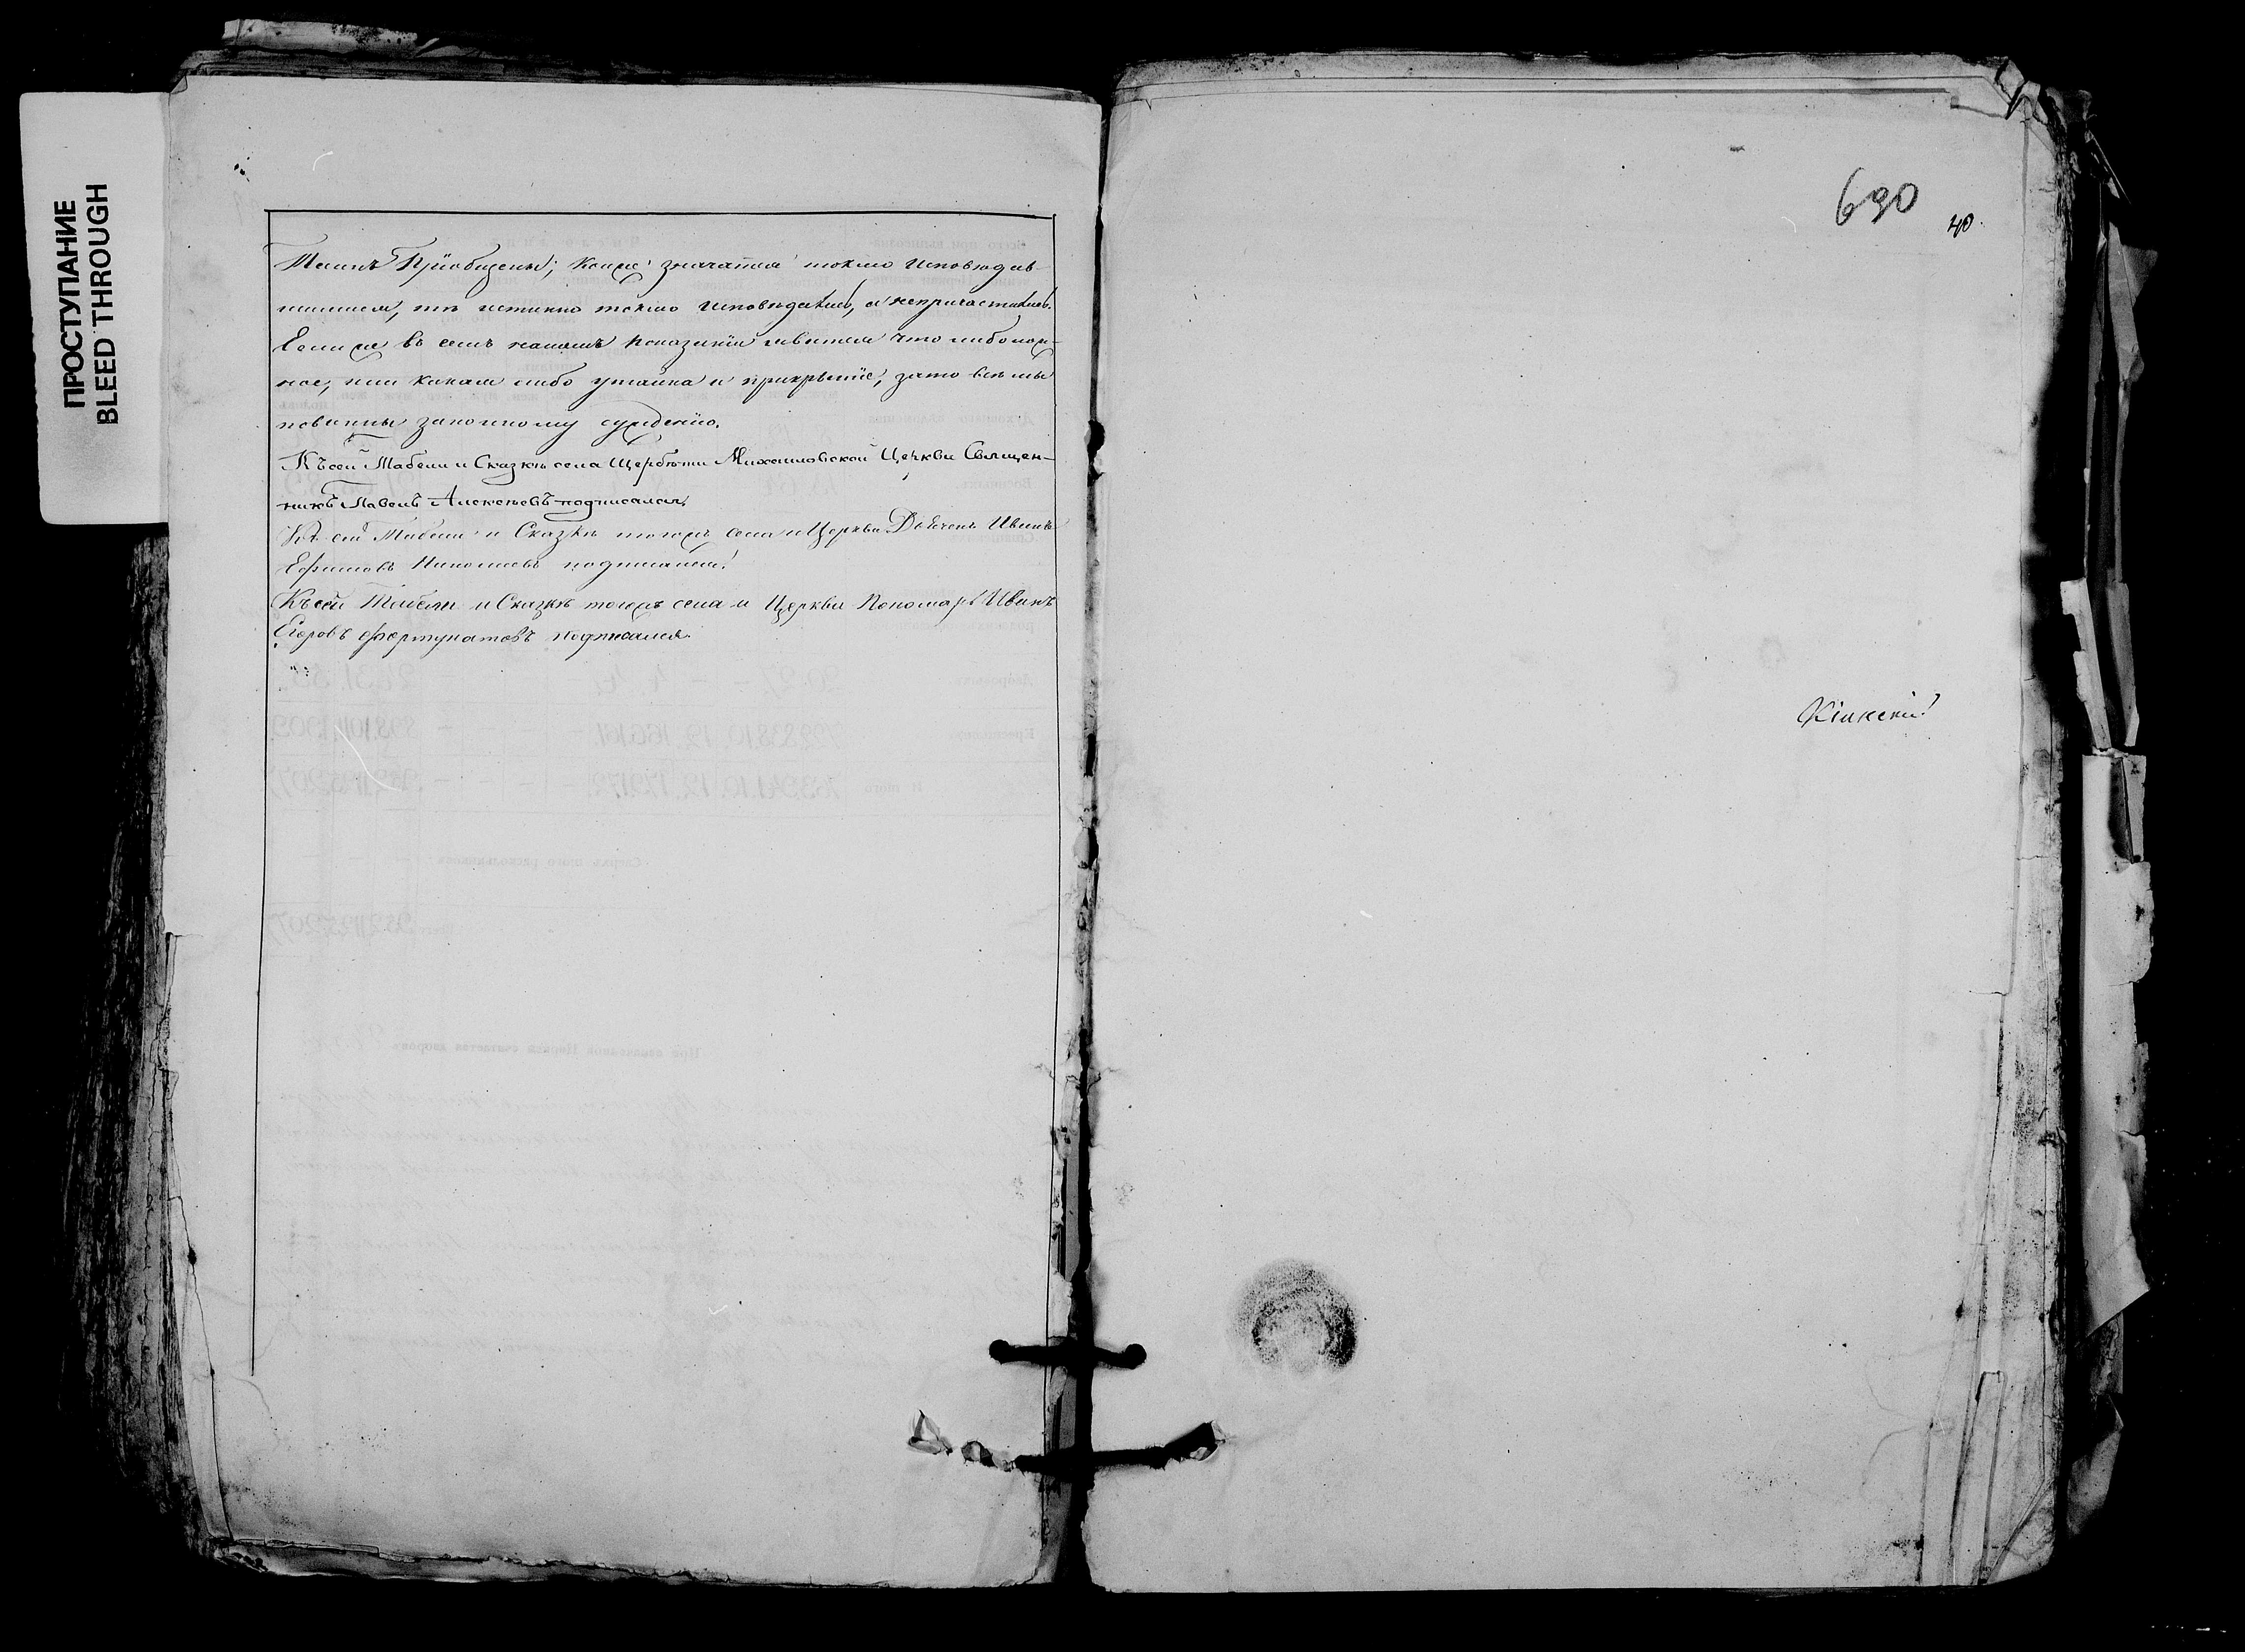 ПРОСТУПАНИЕ
BLEED THROUGH
Таинъ Пріобщены; коиже значатся токмо исповѣдав-
шимися, тѣ истинно токмо исповѣдались, а непричастились.
Еслиже въ семъ нашемъ показаніи явится что либо лож-
ное, или какая либо утайка и прикрытіе, зато всѣ мы
повинны законному сужденію.
Къ сей Табели и Сказкѣ села Щербѣти Михаиловской Церкви Священ-
никъ Павелъ Алексѣевъ подписался.
Къ сей Табели и Сказкѣ тогожъ села и Церкви Дьячекъ Иванъ
Ефимовъ подписался.
Къ сей Табели и Сказкѣ тогожъ села и Церкви Пономарь Иванъ
Егоровъ Фортунатовъ подписался.
690
40.